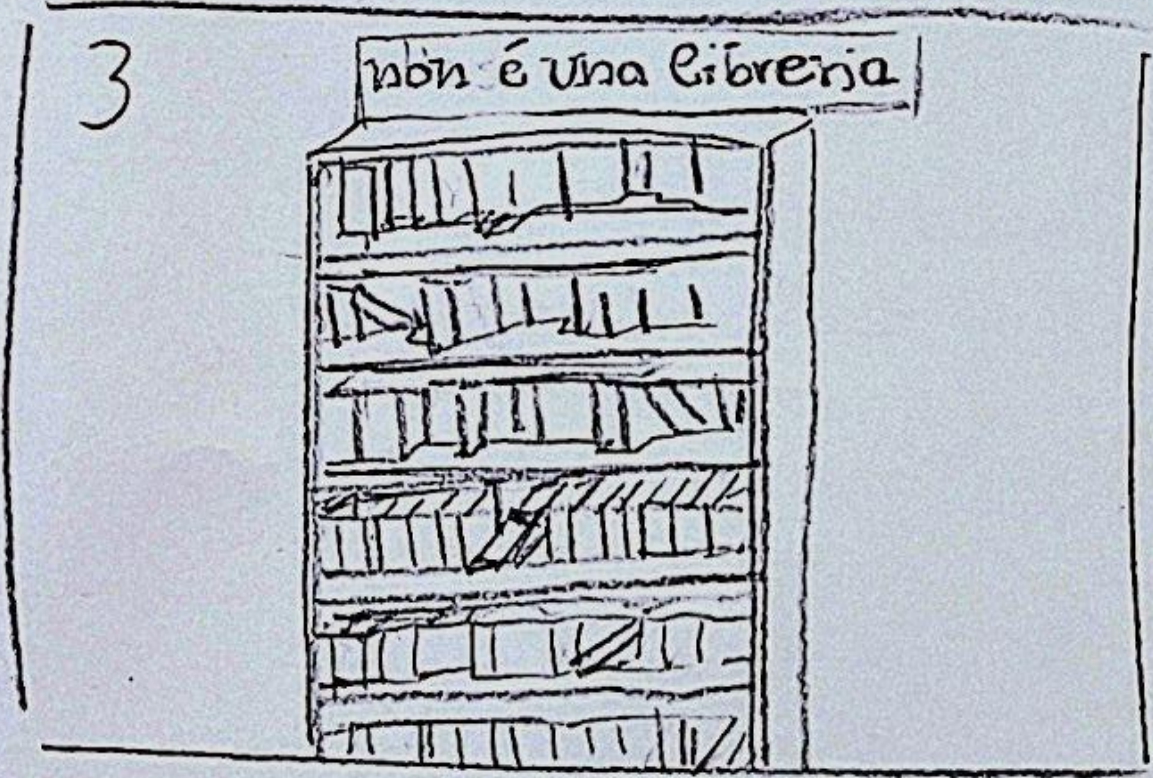 3
non é una libreria